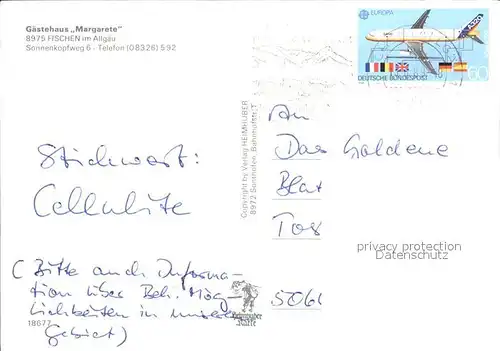 Gästehaus „Margarete“
8975 FISCHEN im Allgäu
Sonnenkopfweg 6 - Telefon (08326) 592
EUROPA
A320
60
DEUTSCHE BUNDESPOST
Copyright by Verlag HEIMHUBER
8972 Sonthofen, Bahnhofstr. 1
Stichwort:
Cellulite
(Bitte auch Informa-
tion über Beh. Mög-
lichkeiten in unserem
Gebiet)
18677
An
Das Goldene
Blat
Tor
5061
privacy protection
Datenschutz
Heimhuber
Karte